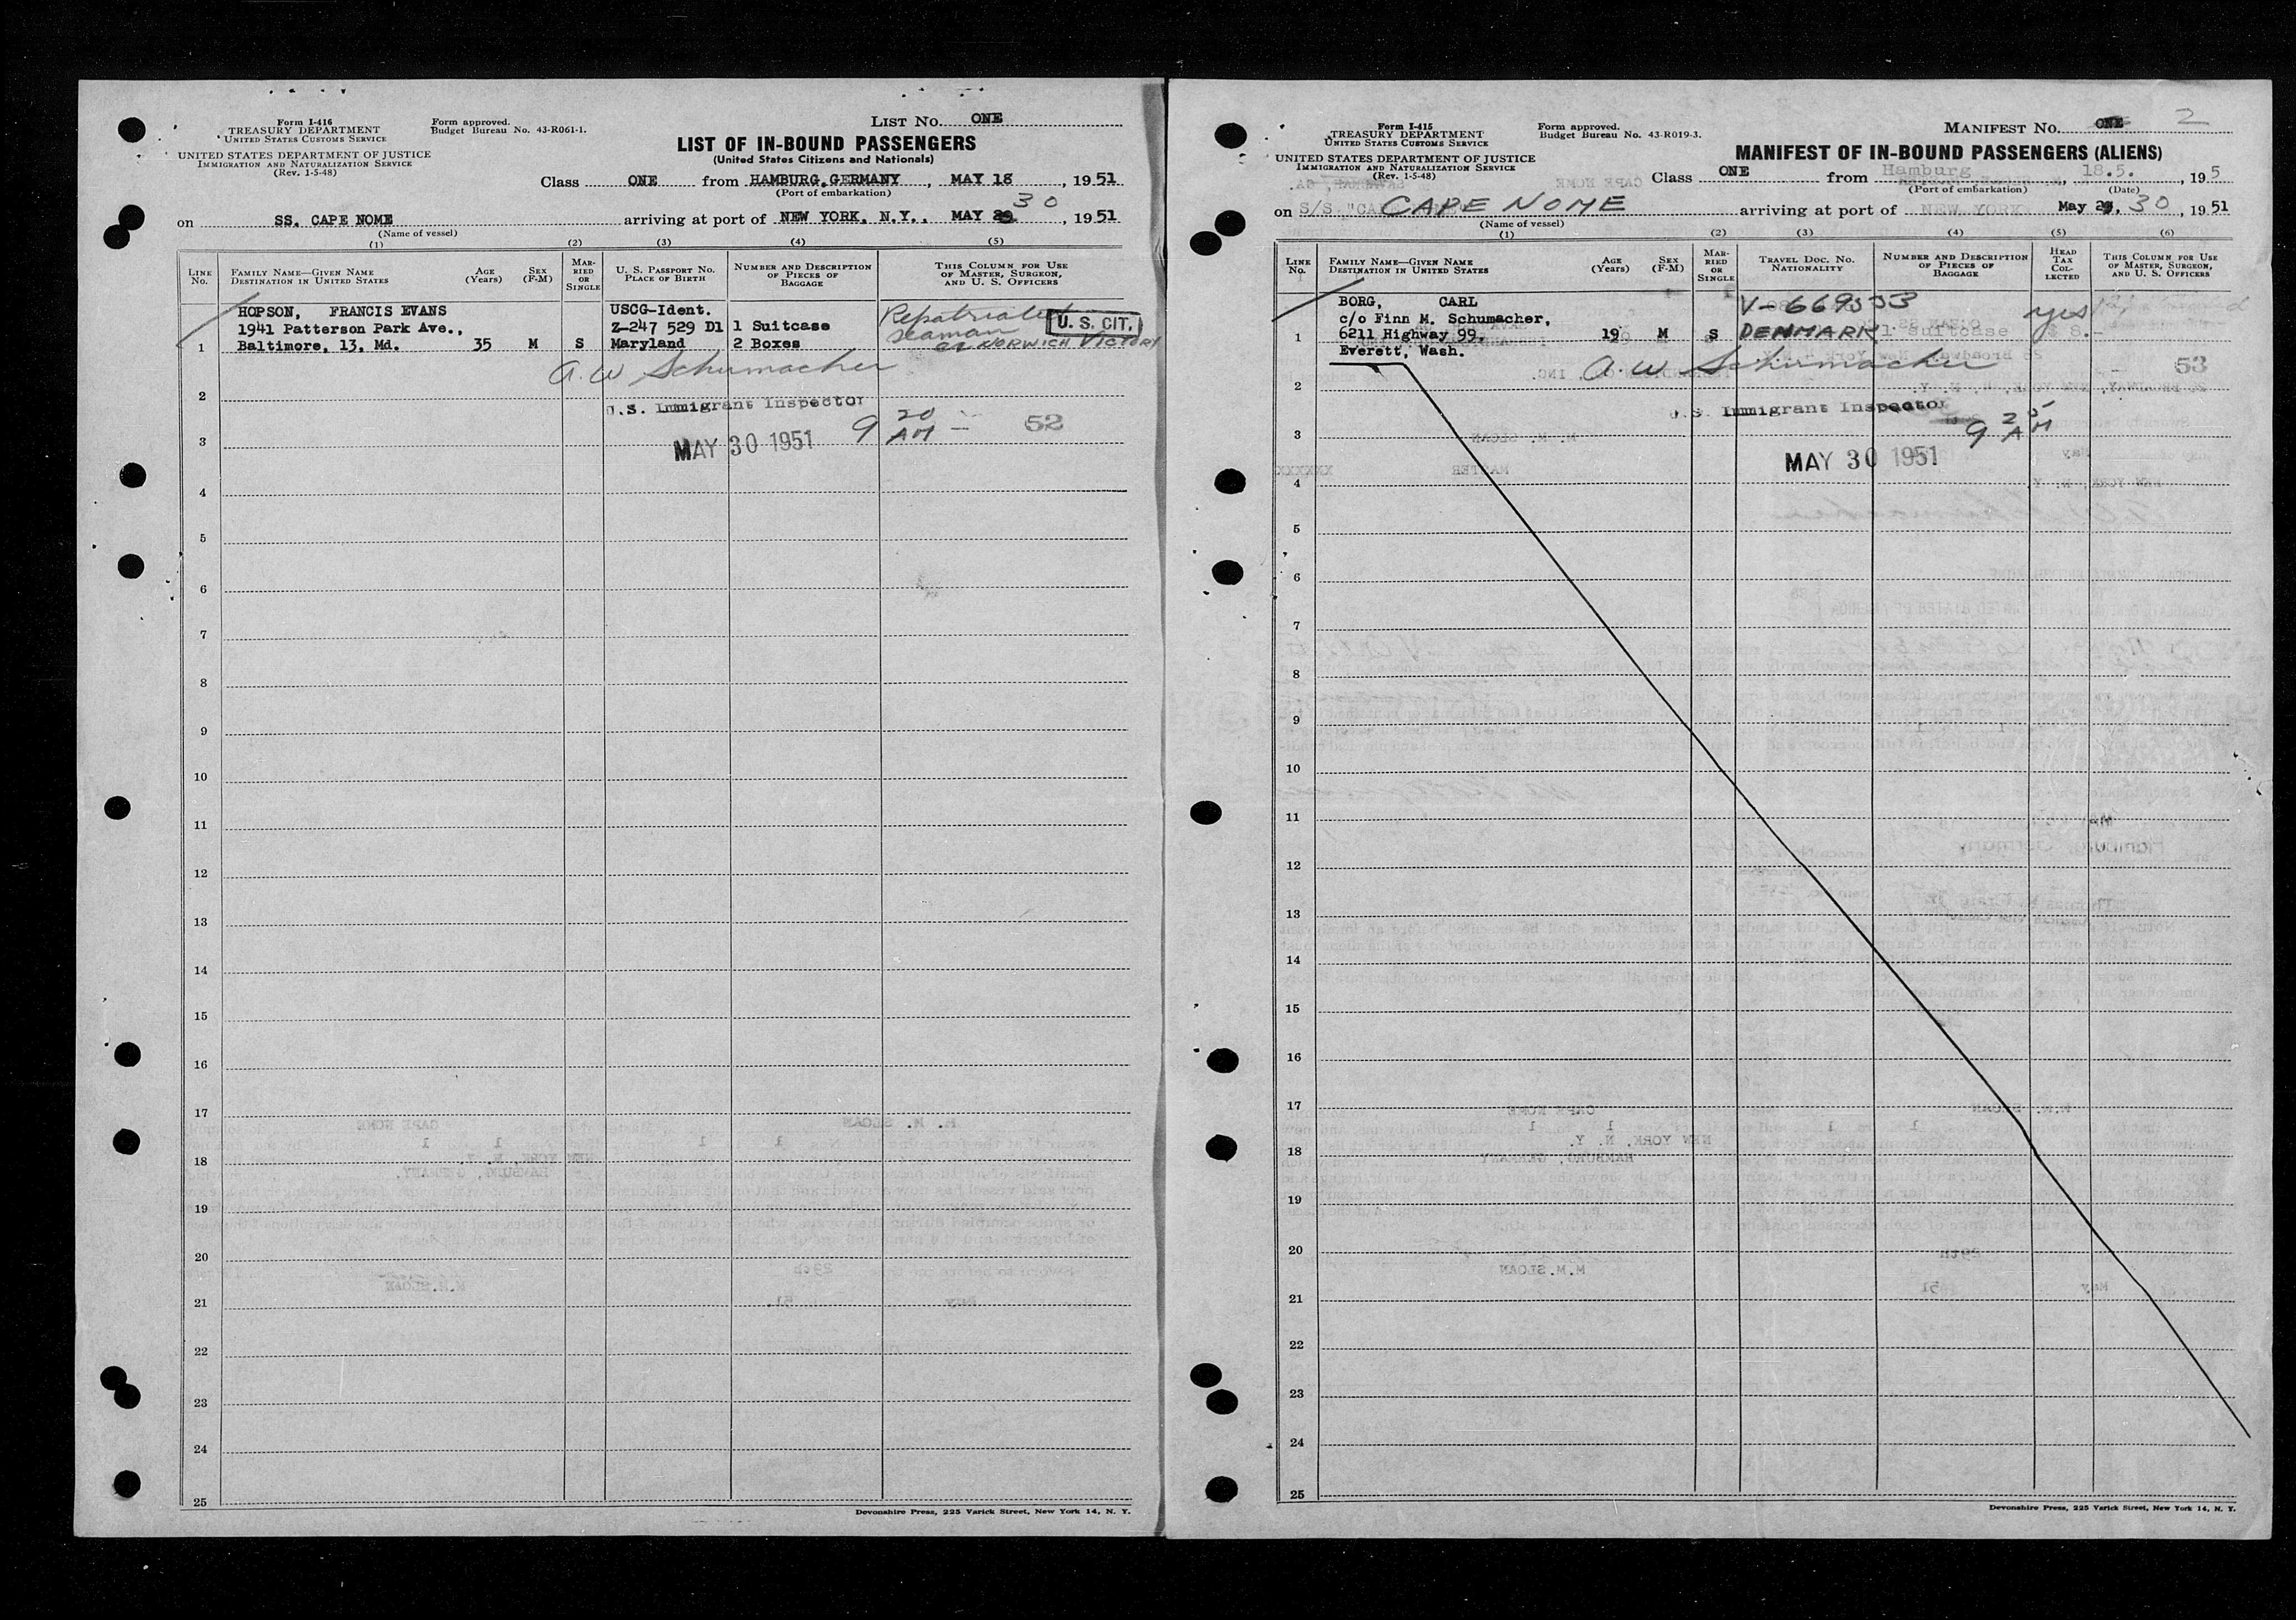 Form I-416
TREASURY DEPARTMENT
UNITED STATES CUSTOMS SERVICE
UNITED STATES DEPARTMENT OF JUSTICE
IMMIGRATION AND NATURALIZATION SERVICE
(Rev. 1-5-48)
Form approved.
Budget Bureau No. 43-R061-1.
LIST NO. ONE
LIST OF IN-BOUND PASSENGERS
(United States Citizens and Nationals)
Class ONE from HAMBURG, GERMANY, MAY 18, 1951
(Port of embarkation)
on SS. CAPE NOME arriving at port of NEW YORK, N.Y., MAY 30, 1951
(Name of vessel)
(1) (2) (3) (4) (5)
LINE No. FAMILY NAME—GIVEN NAME DESTINATION IN UNITED STATES AGE (Years) SEX (F-M) MARRIED OR SINGLE U. S. PASSPORT NO. PLACE OF BIRTH NUMBER AND DESCRIPTION OF PIECES OF BAGGAGE THIS COLUMN FOR USE OF MASTER, SURGEON, AND U. S. OFFICERS
HOPSON, FRANCIS EVANS USCG-Ident. Repatriated
1941 Patterson Park Ave., Z-247 529 D1 1 Suitcase Seaman U. S. CIT.
1 Baltimore, 13, Md. 35 M S Maryland 2 Boxes NORWICH VICTORY
A. W Schumacher
2
U.S. Immigrant Inspector
3 MAY 30 1951 9 20 AM — 52
4
5
6
7
8
9
10
11
12
13
14
15
16
17
18
19
20
21
22
23
24
25
Devonshire Press, 225 Varick Street, New York 14, N. Y.
Form I-415
TREASURY DEPARTMENT
UNITED STATES CUSTOMS SERVICE
UNITED STATES DEPARTMENT OF JUSTICE
IMMIGRATION AND NATURALIZATION SERVICE
(Rev. 1-5-48)
Form approved.
Budget Bureau No. 43-R019-3.
MANIFEST NO. ONE 2
MANIFEST OF IN-BOUND PASSENGERS (ALIENS)
Class ONE from Hamburg, 18.5., 195
(Port of embarkation) (Date)
on S/S "CAPE NOME arriving at port of NEW YORK May 30, 1951
(Name of vessel)
(1) (2) (3) (4) (5) (6)
LINE No. FAMILY NAME—GIVEN NAME DESTINATION IN UNITED STATES AGE (Years) SEX (F-M) MARRIED OR SINGLE TRAVEL DOC. NO. NATIONALITY NUMBER AND DESCRIPTION OF PIECES OF BAGGAGE HEAD TAX COLLECTED THIS COLUMN FOR USE OF MASTER, SURGEON, AND U. S. OFFICERS
BORG, CARL V-669553 yes
c/o Finn M. Schumacher,
1 6211 Highway 99, 19 M S DENMARK 1 suitcase $ 8.-
Everett, Wash.
A. W Schumacher 53
2
U.S. Immigrant Inspector
3 9 25 AM
MAY 30 1951
4
5
6
7
8
9
10
11
12
13
14
15
16
17
18
19
20
21
22
23
24
25
Devonshire Press, 225 Varick Street, New York 14, N. Y.